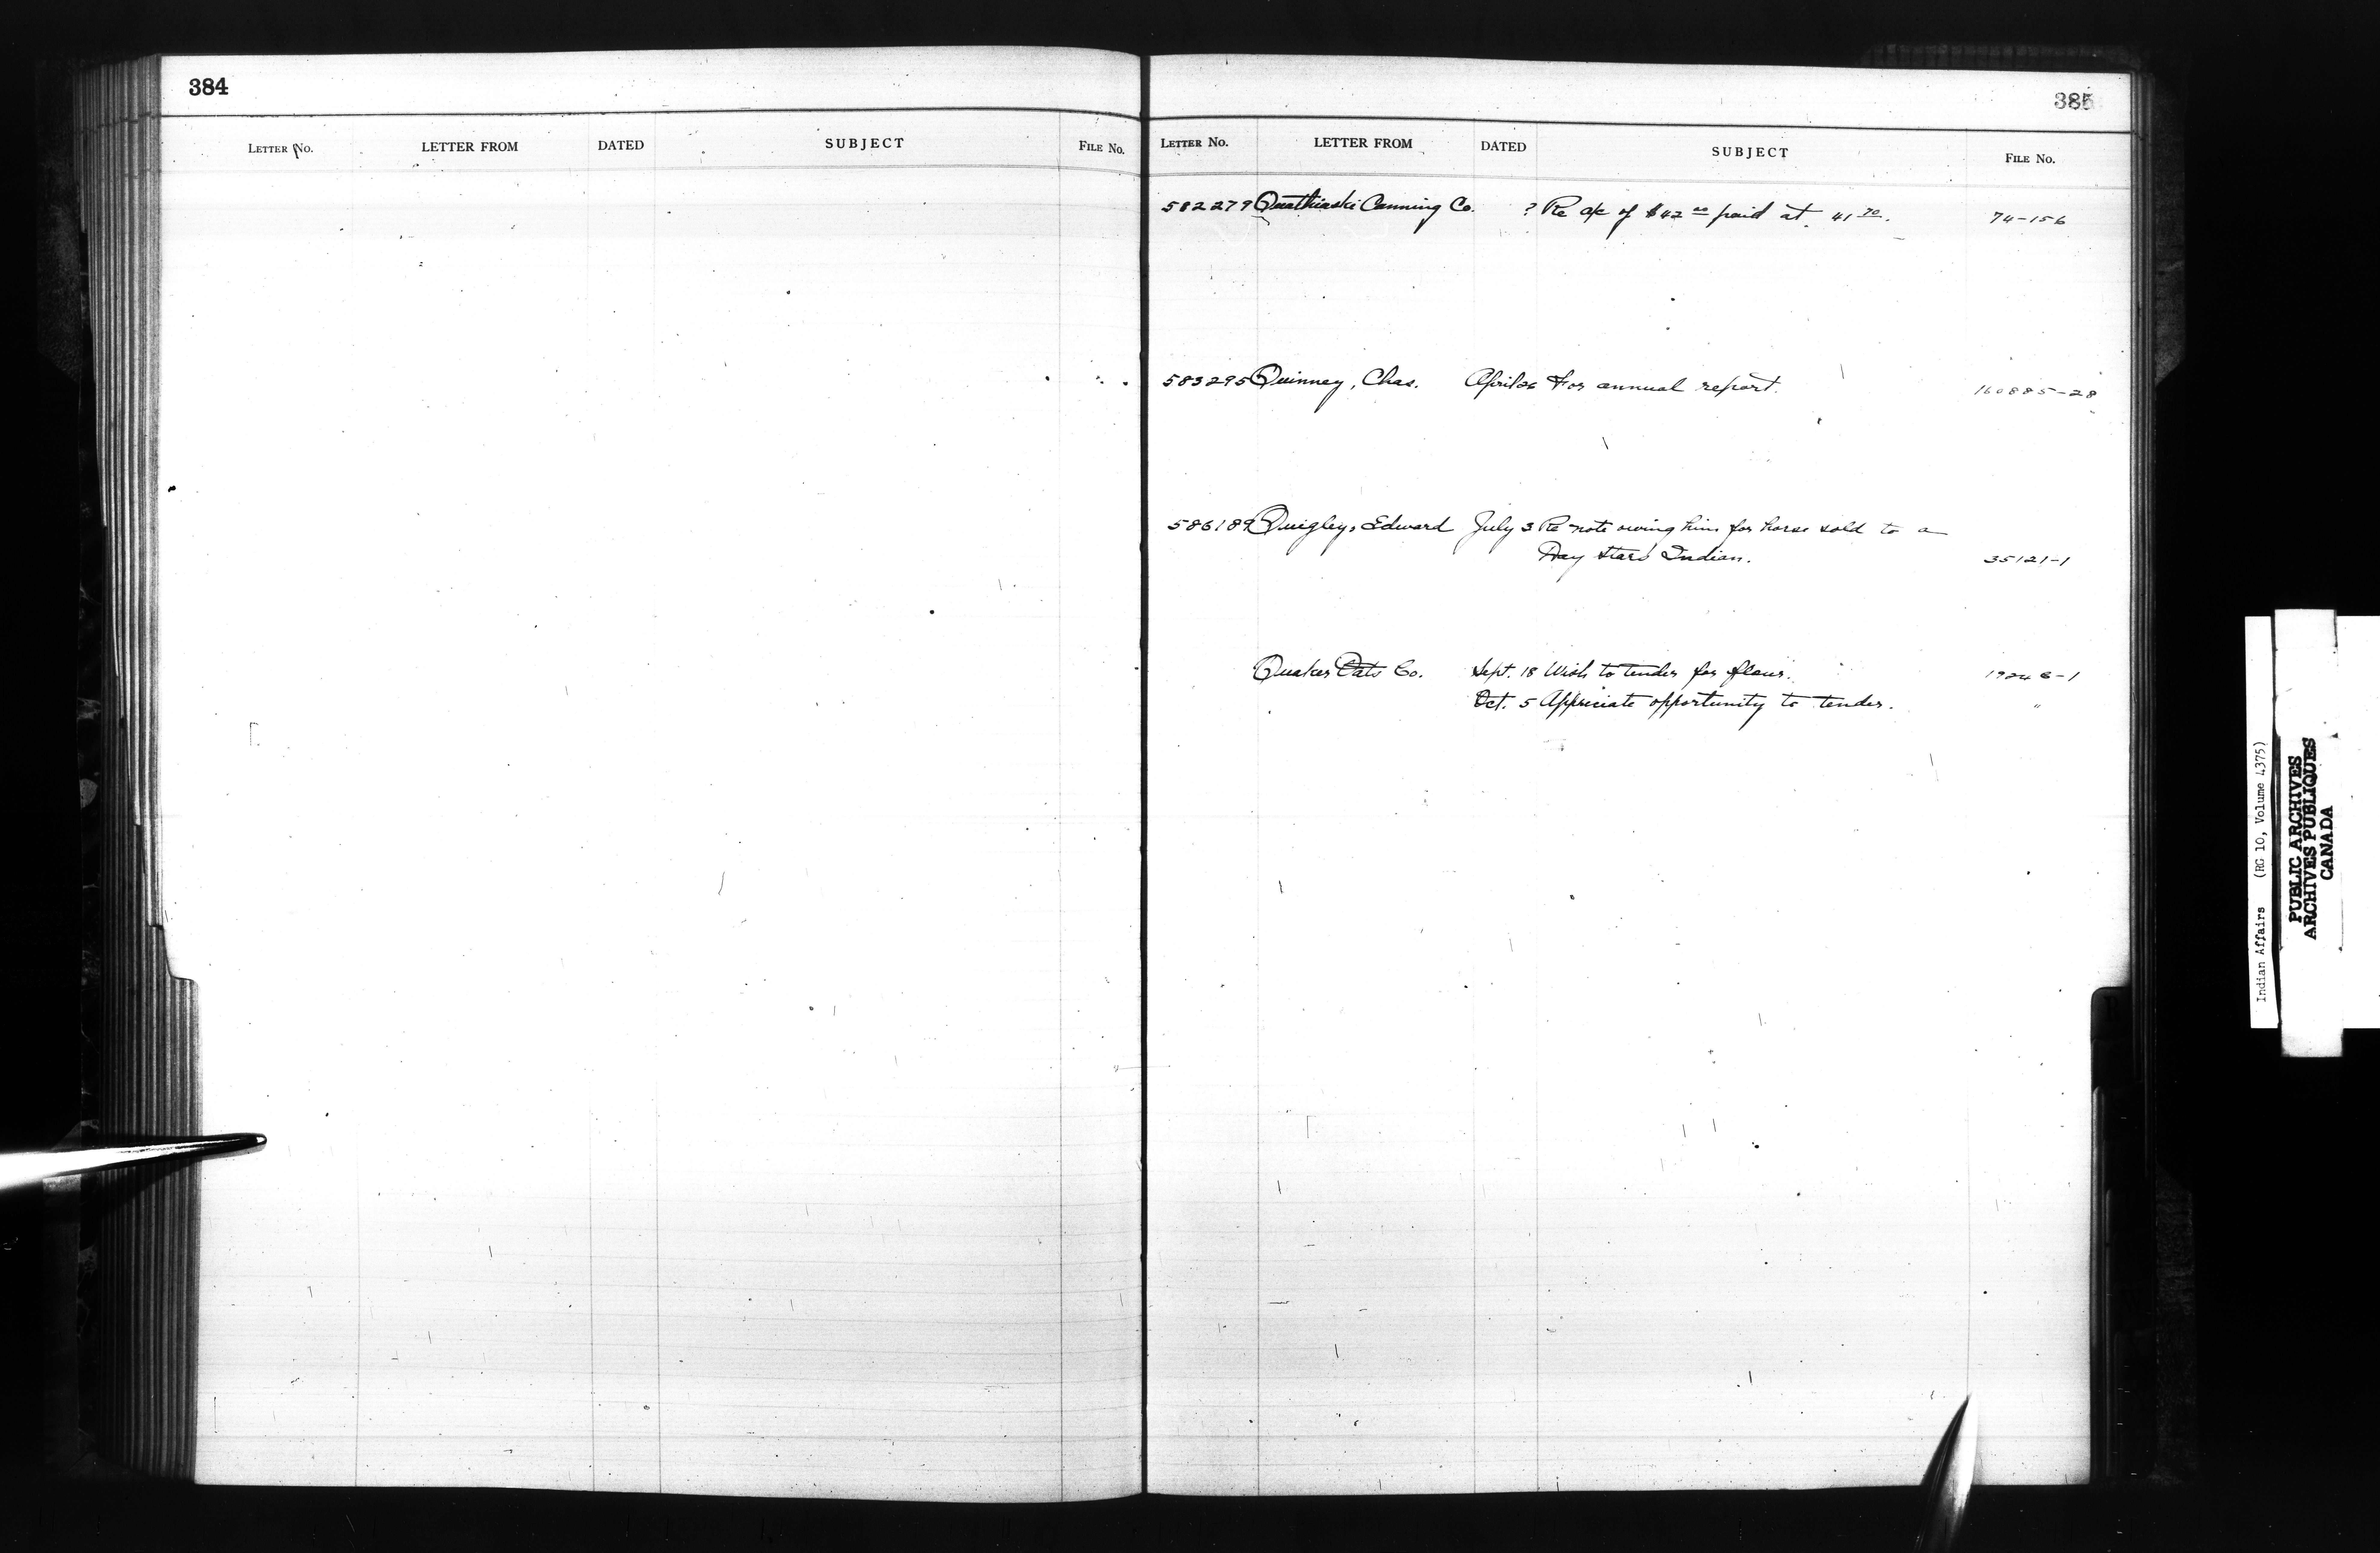 384
LETTER No. LETTER FROM DATED SUBJECT FILE No.
385
LETTER No. LETTER FROM DATED SUBJECT FILE No.
582279 Quathiaski Canning Co. ? Re a/c of $42 00 paid at 41 70. 74-156
583295 Quinney, Chas. April 26 For annual report. 160885-28
586189 Quigley, Edward July 3 Re note owing him for horse sold to a
Day Stars Indian. 35121-1
Quaker Oats Co. Sept. 18 Wish to tender for flour. 19246-1
Oct. 5 Appriciate opportunity to tender. "
Indian Affairs (RG 10, Volume 4375)
PUBLIC ARCHIVES
ARCHIVES PUBLIQUES
CANADA